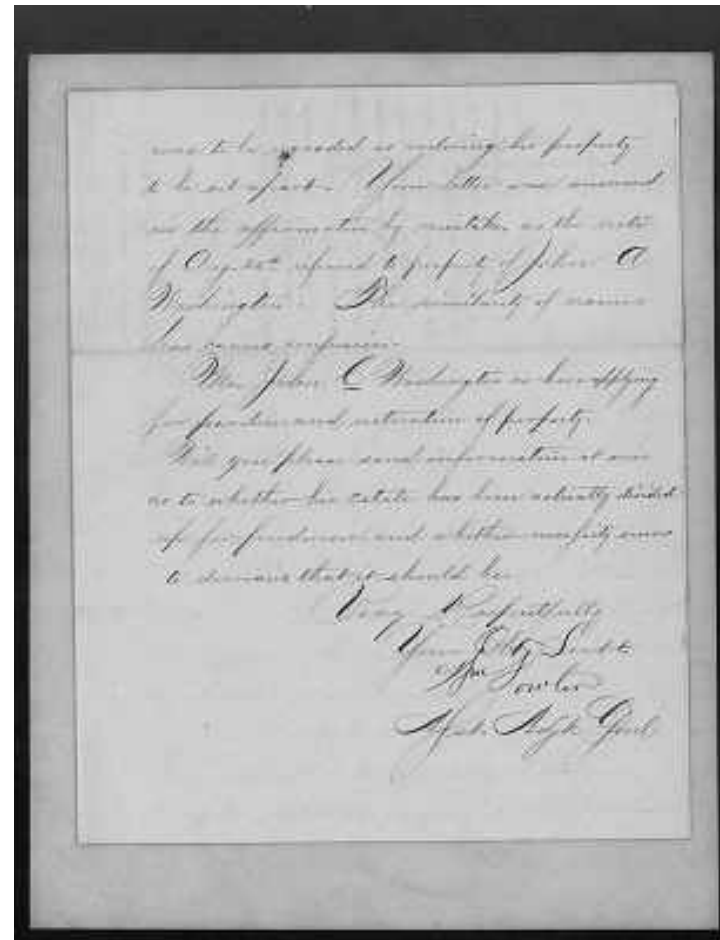 was to be regarded as ordering his property
to be set apart. Your letter was answered
in the affirmative by mistake as the note
of Aug. referred to property of John A
Washington. The similarity of names
has caused confusion.
Mr. John C Washington is here applying
for pardon and restoration of property.
Will you please send information at once
as to whether his estate has been actually divided
up for freedmen and whether necessity seems
to demand that it should be.
Very Respectfully
Your Obt Servt
Wm Fowler
Asst. Adjt. Genl